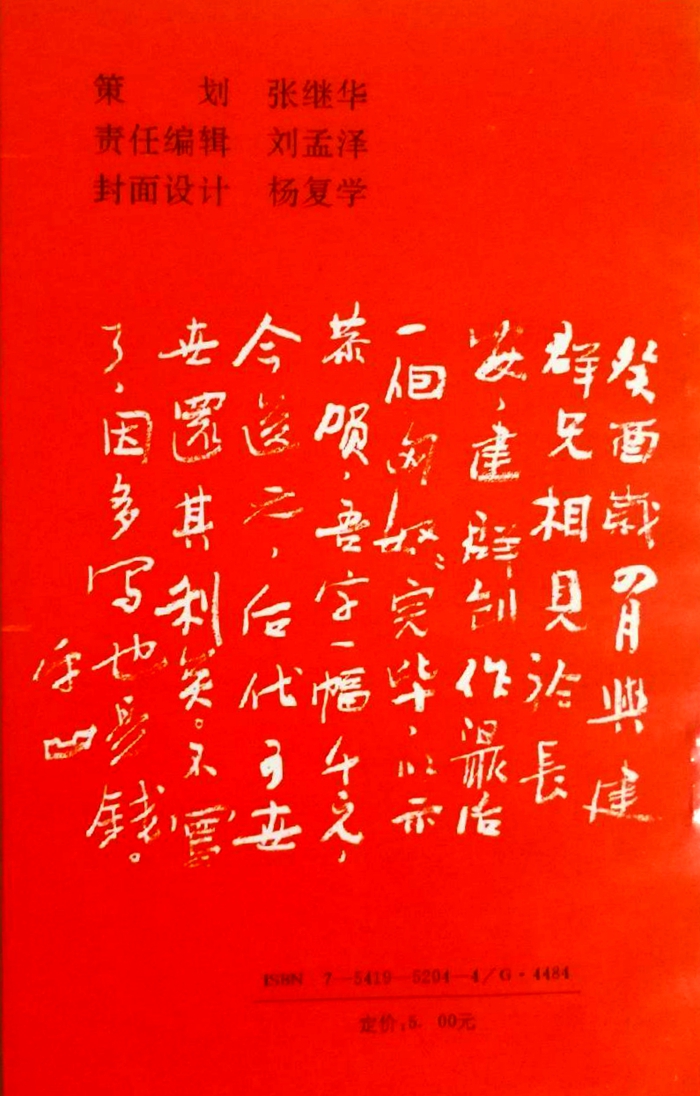 策 划 张继华
责任编辑 刘孟泽
封面设计 杨复学
癸酉歲四月與建
群兄相見於長
安，建群创作最后
一個匈奴完毕，以示
恭贺，吾字一幅千元，
今送之，后代可世
世其利矣。不寫
了，因多写也是錢。
平凹
ISBN 7—5419—5204—4/G·4484
定价:5.00元